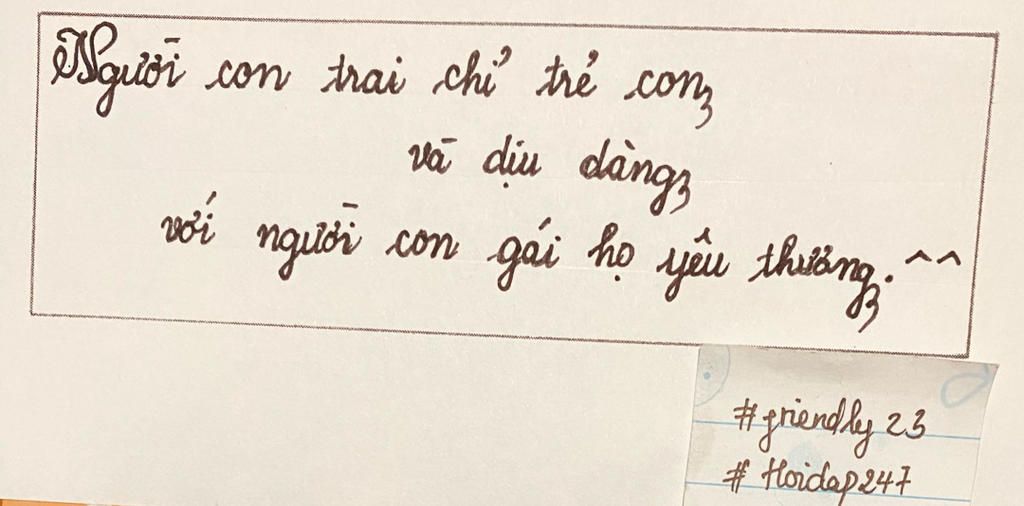 Người con trai chỉ trẻ con
và dịu dàng
với người con gái họ yêu thương. ^^
#friendly 23
# Hoidap247